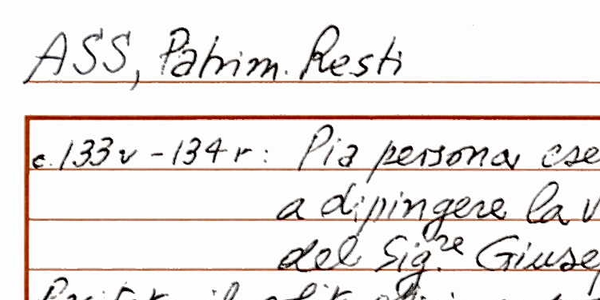 ASS, Patrim. Resti
c. 133v - 134r: Pia persona
a dipingere la
del Sig.re